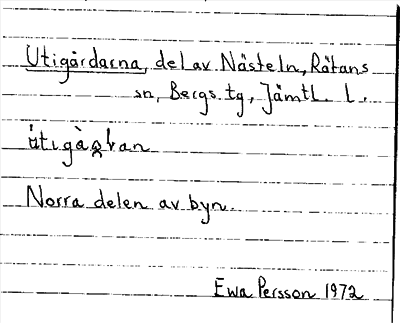 Utigårdarna, del av Nästeln, Råtans
sn, Bergs tg, Jämtl. l.
Norra delen av byn.
Ewa Persson 1972